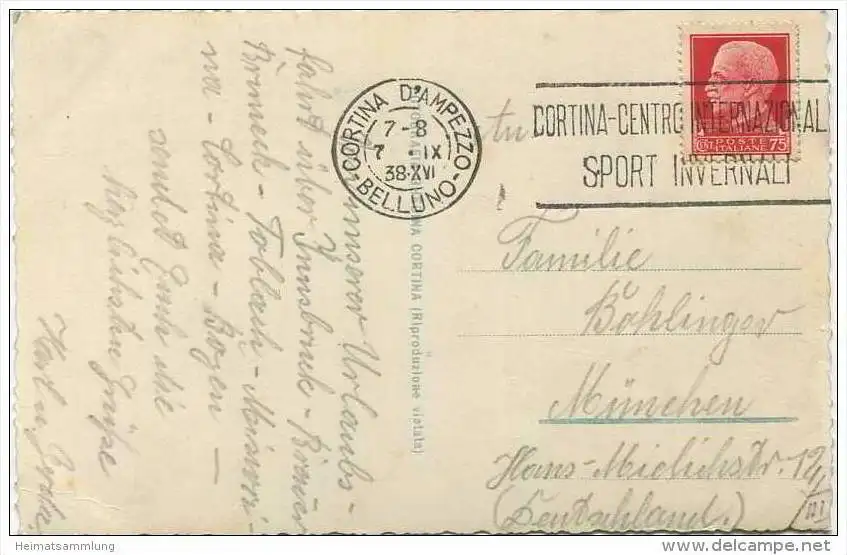 CORTINA D'AMPEZZO
7-8
7 . IX
38.XVI
-BELLUNO-
CORTINA-CENTRO INTERNAZIONAL
SPORT INVERNALI
POSTE
ITALIANE
75
CORTINA (Riproduzione vietata)
unserer Urlaubs-
fahrt über Innsbruck -
- Toblach -
- Cortina - Bozen -
sendet Euch die
herzlichsten Grüße
Karl u.
An
Familie
Böhlinger
München
Hans-Mielichstr. 12/
(Deutschland.)
III
Heimatsammlung
www.delcampe.net